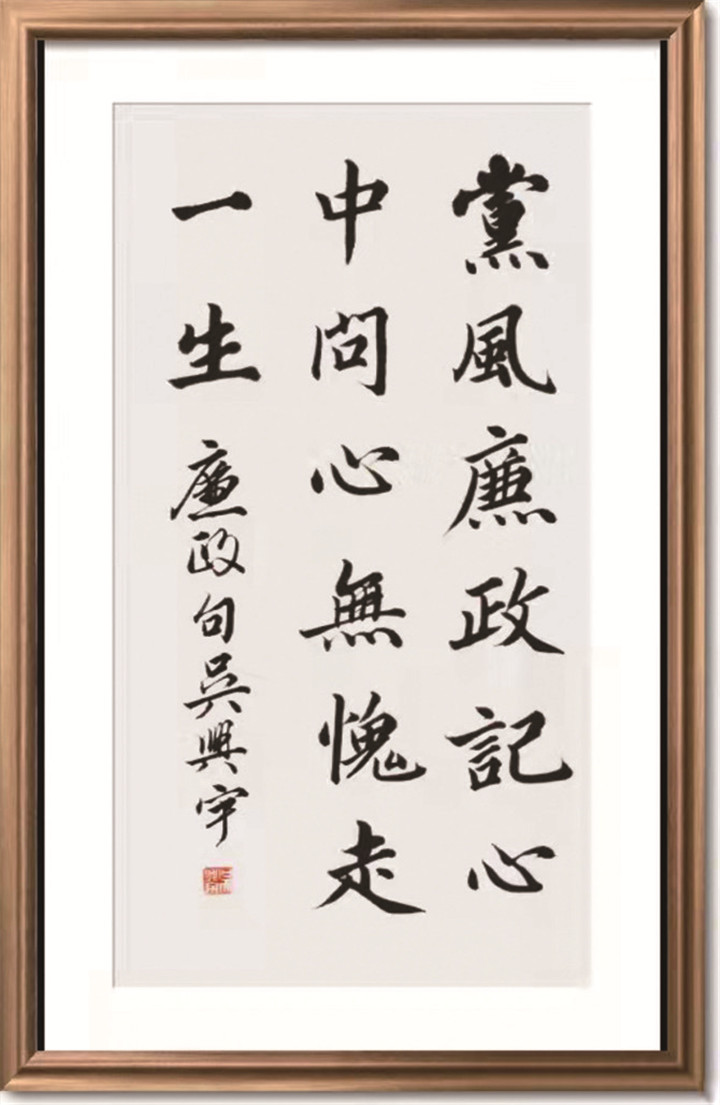 黨風廉政記心
中問心無愧走
一生 廉政句吳興宇